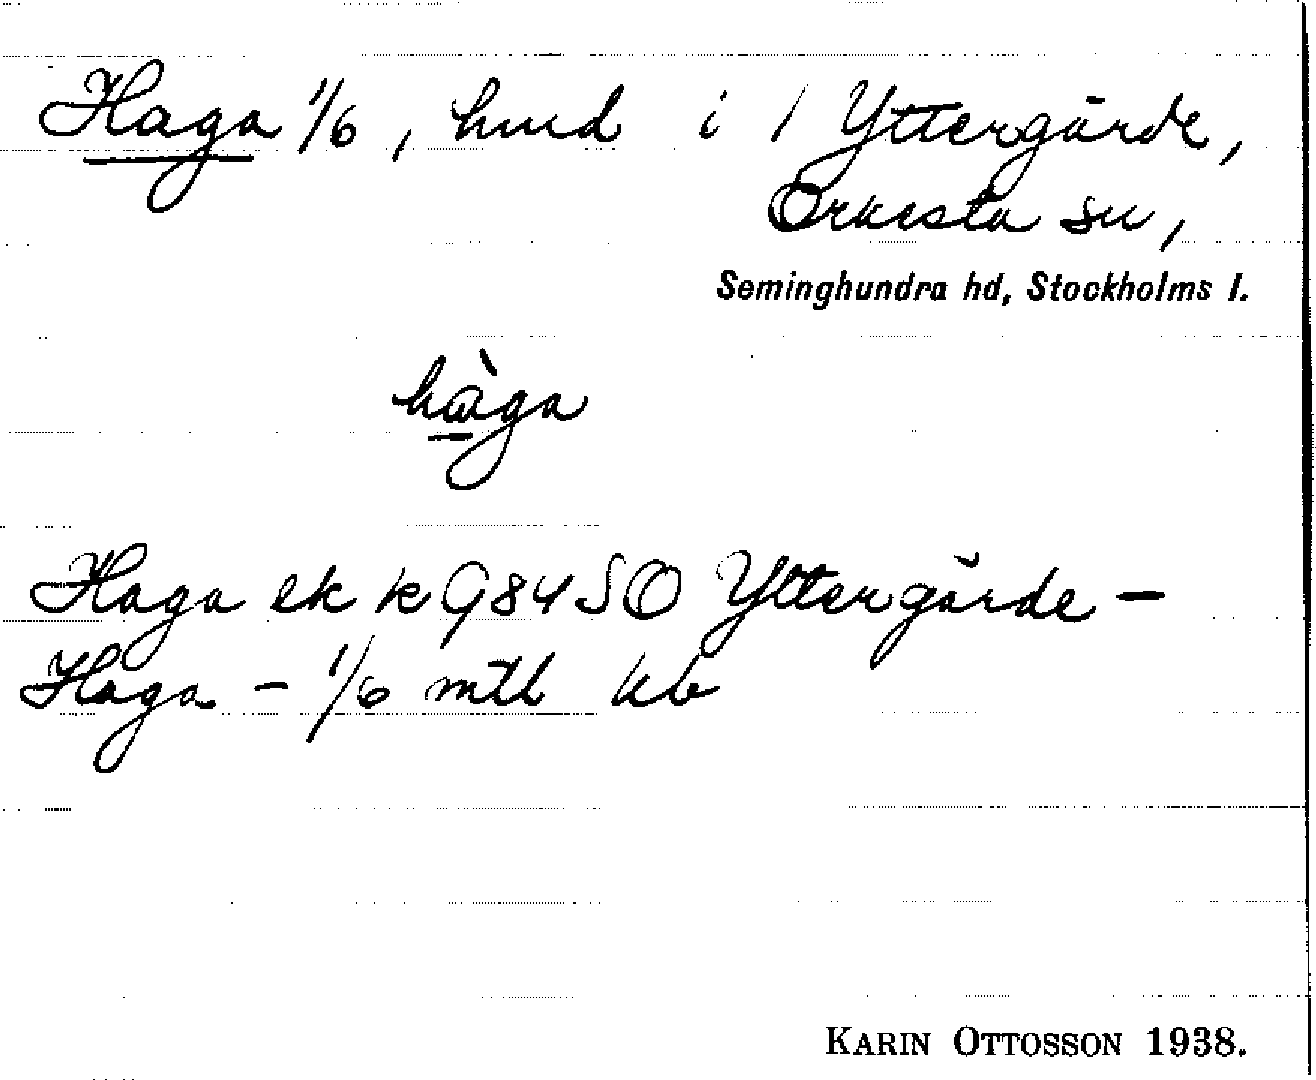 Haga 1/6, hmd i / Yttergärde,
Orkesta sn,
Seminghundra hd, Stockholms l.
hàga
Haga ek k G84SO Yttergärde –
Haga – 1/6 mtl kb
KARIN OTTOSSON 1938.